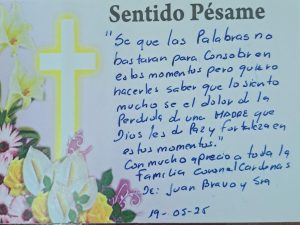 Sentido Pésame
"Se que las Palabras no
bastaran para Consolar en
estos momentos pero quiero
hacerles saber que lo siento
mucho se el dolor de la
Perdida de una MADRE que
Dios les de Paz y Fortaleza en
estos momentos."
Con mucho aprecio a toda la
Familia Coronel Cardenas
De: Juan Bravo y Sra
19-05-25